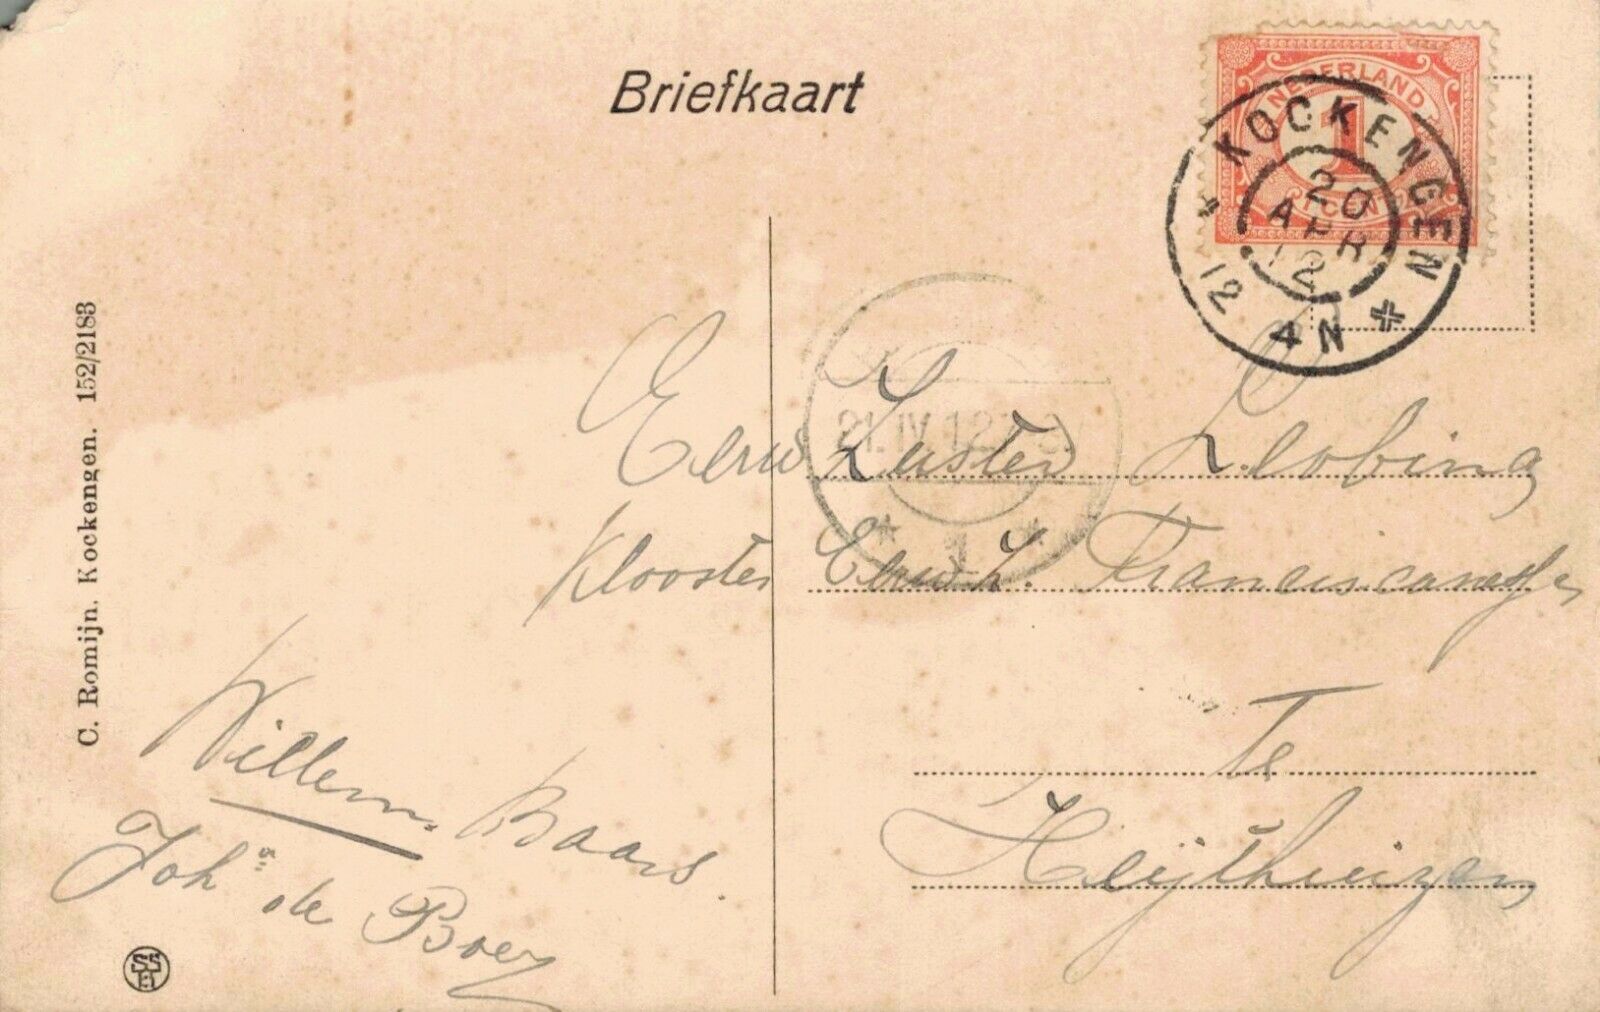 Briefkaart
NEDERLAND
1
CENT
KOCKENGEN
20
APR
12
12 4N
21.IV.12
C. Romijn. Kockengen. 152/2183
Eerw Zuster Leobina
Klooster Eerw Z. Franciscanessen
Te
Heijthuizen
Willem Baars
Joh.a de Boer
SSH